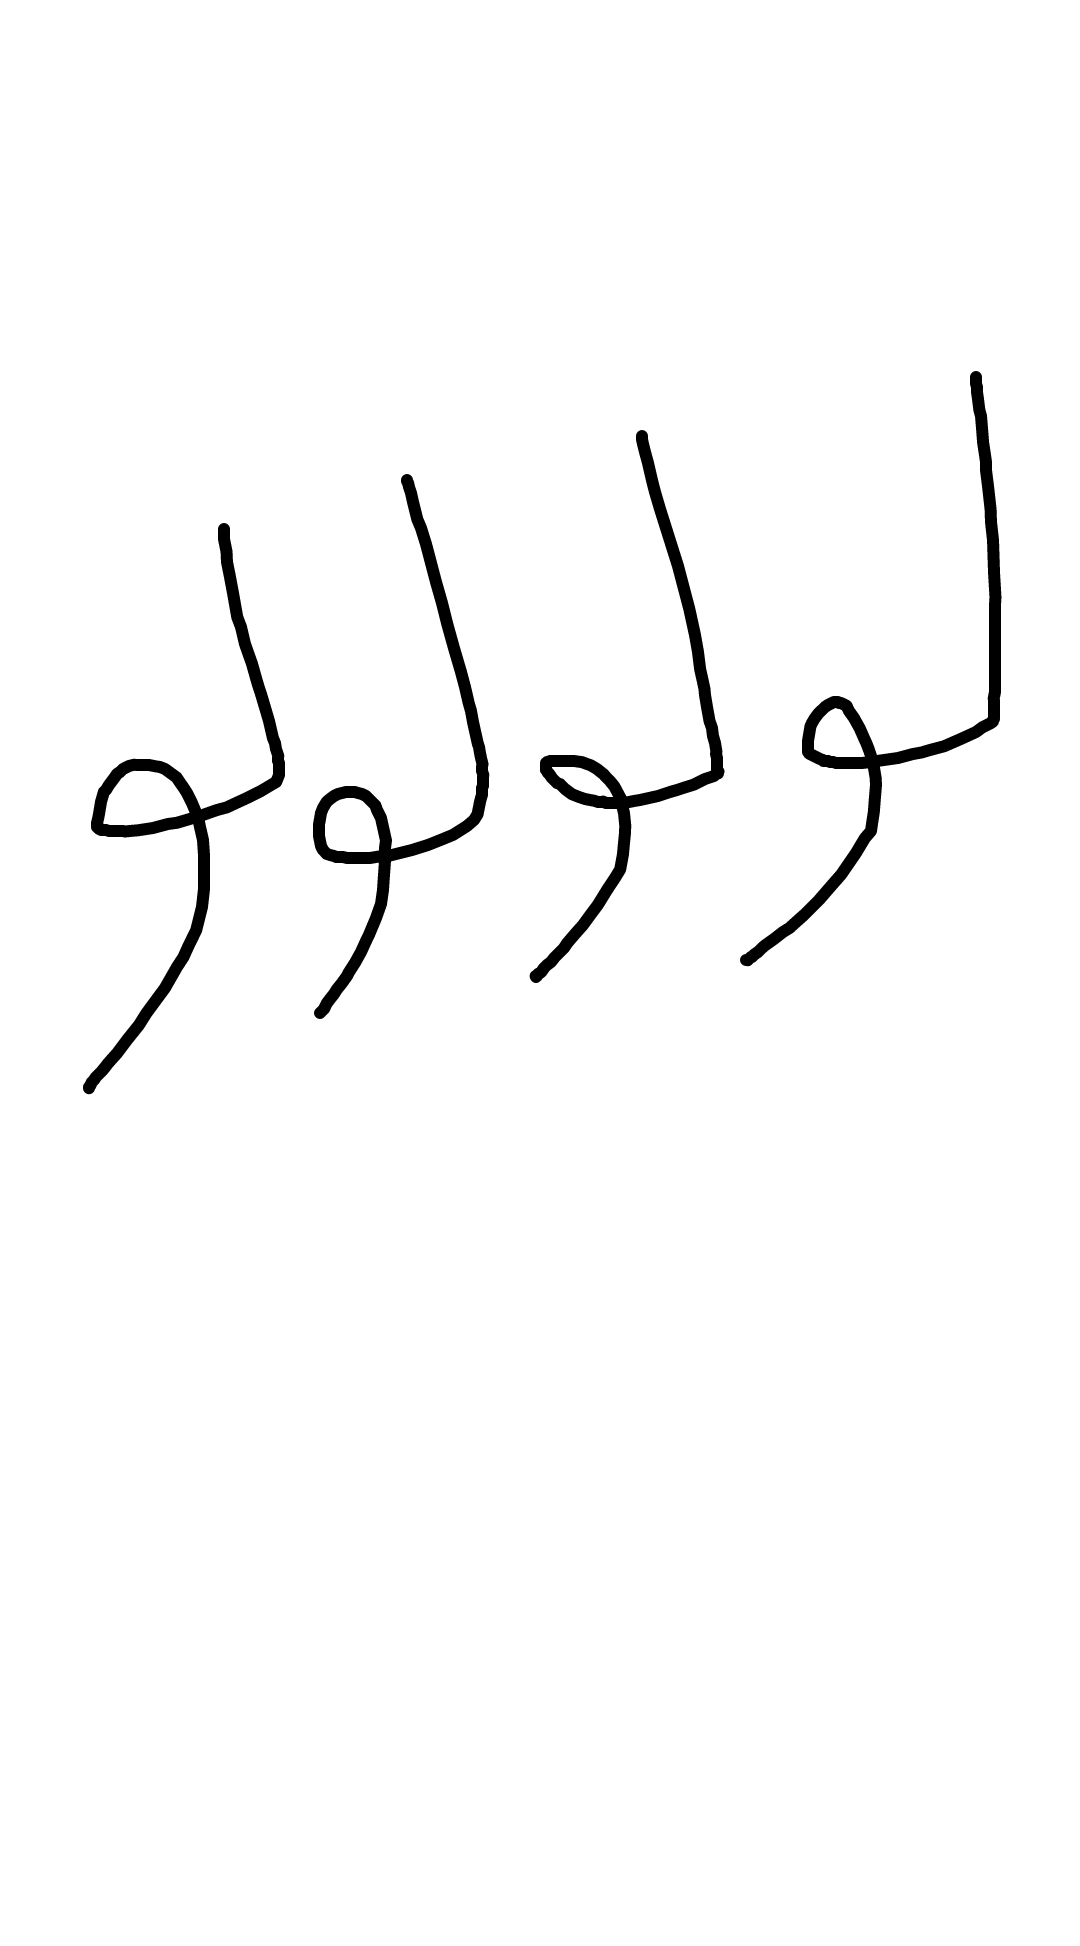 لو لو لو لو